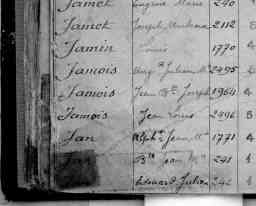 Jamet Eugène Marie 240
Jamet Joseph 2112
Jamin Louis 1770
Jamois Aug. Julien M. 2495
Jamois Jean Bte Joseph 1964
Jamois Jean Louis 2496
Jan Alph. Jean M. 1771
Bte Jean M. 241
Edouard Julien 242